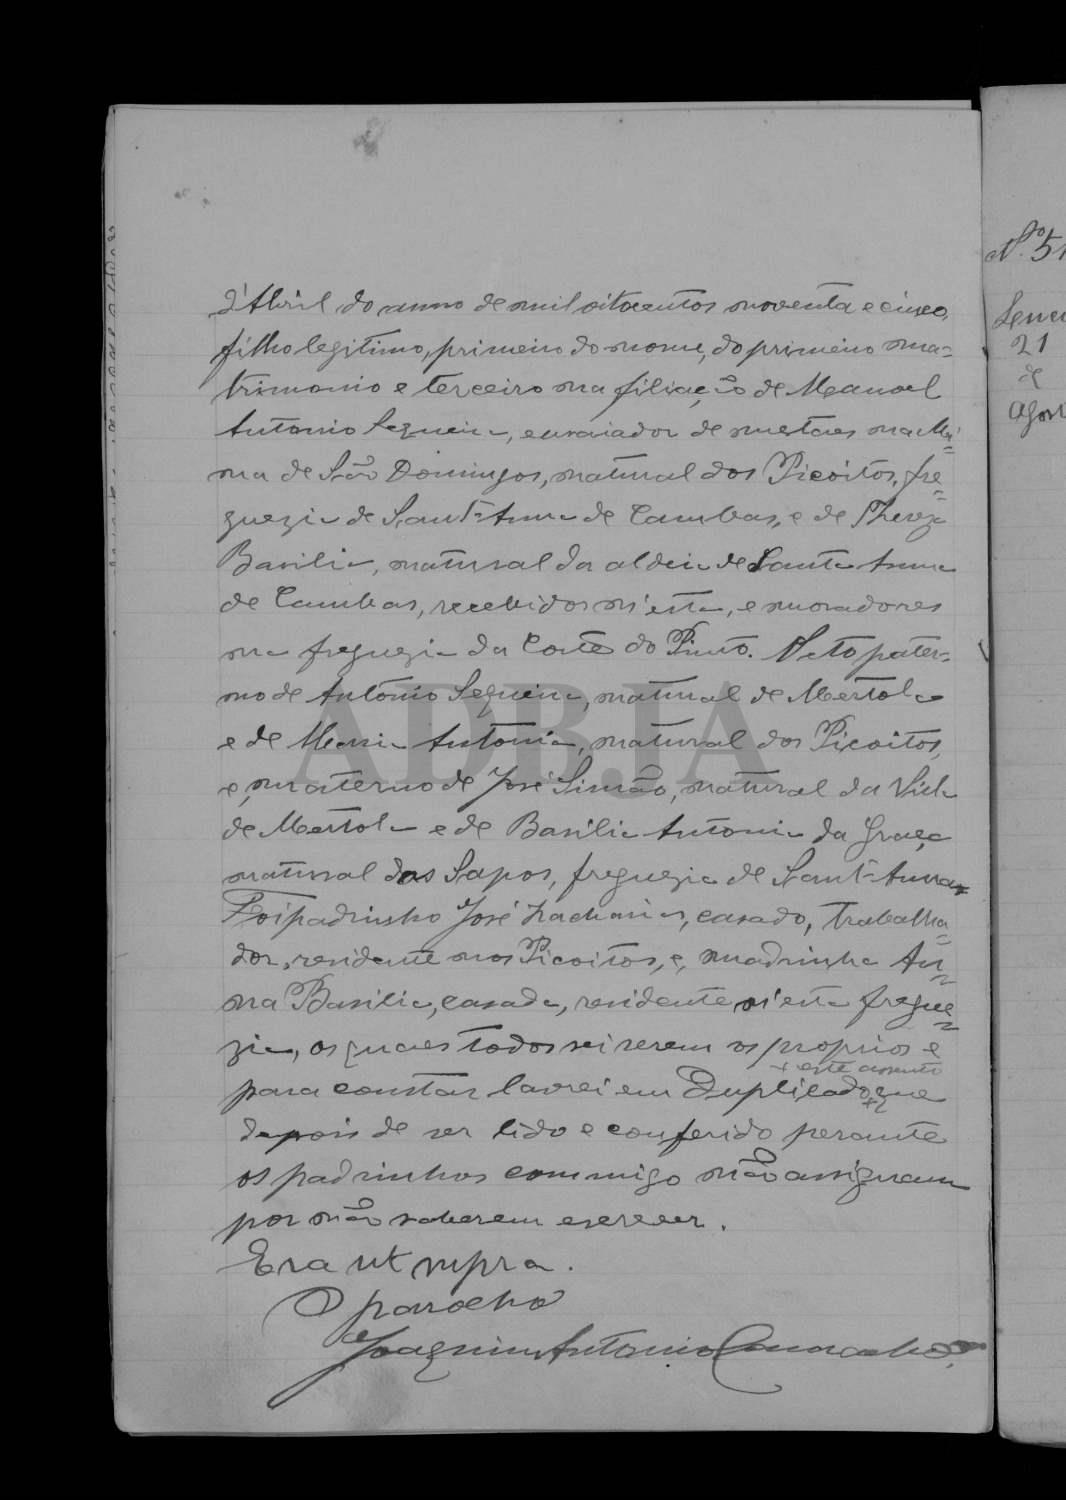 d'Abril do anno de mil oitocentos noventa e cinco,
filho legitimo, primeiro do nome, do primeiro ma=
trimonio e terceiro na filiação de Manoel
Antonio Sequeira, ensaiador de metaes na Mi=
na de São Domingos, natural dos Picoitos, fre=
guezia de Sant'Anna de Cambas, e de Thereza
Basilia, natural da aldeia de Santa Anna
de Cambas, recebidos n'esta, e moradores
na freguezia da Corte do Pinto. Neto pater=
no de Antonio Sequeira, natural de Mertola
e de Maria Antonia, natural dos Picoitos,
e, materno de José Simão, natural da Villa
de Mertola e de Basilia Antonia da Graça
natural dos Sapos, freguezia de Sant'Anna
Foi padrinho José Zacharias, casado, trabalha=
dor, residente nos Picoitos, e, madrinha An=
na Basilia, casada, residente n'esta fregue=
zia, os quaes todos sei serem os proprios e
+ este assento
para constar lavrei em Duplicado + que
depois de ser lido e conferido perante
os padrinhos commigo não assignam
por não saberem escrever.
Era ut supra.
O parocho
Joaquim Antonio Camacho
ADBJA
Nº 5
21
de
Agost